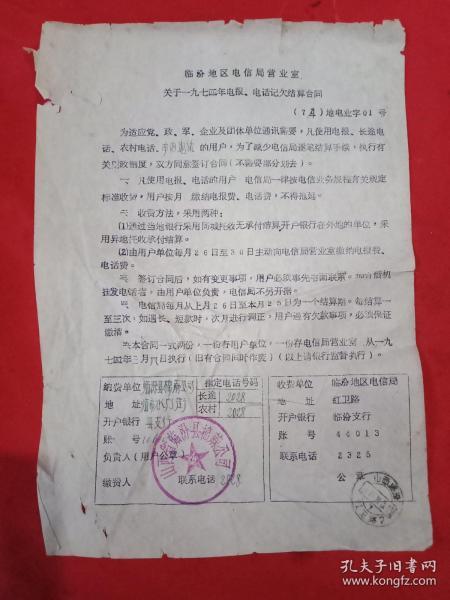 临汾地区电信局营业室
关于一九七四年电报、电话记欠结算合同
(74)地电业字01号
为适应党、政、军、企业及团体单位通讯需要,凡使用电报、长途电
话、农村电话、的用户,为了减少电信局逐笔结算手续,执行有
关财政制度,双方同意签订合同(不需要部分划去)。
一、凡使用电报、电话的用户 电信局一律按电信业务规程有关规定
标准收费,用户按月 缴纳电报费、电话费,不得拖延。
二、收费方法,采用两种:
(1)通过当地银行采用同城托收无承付结算开户银行在外地的单位,采
用异地托收承付结算。
(2)由用户单位每月26日至30日主动向电信局营业室缴纳电报费、
电话费。
三、签订合同后,如有变更事项,用户必须事先书面联系。
挂发电话者,由用户单位负责,电信局不另开据。
四、电信局每月从上月26日至本月25日为一个结算期。每结算一
至三次,如遇长、短款时,次月进行调正,用户遇有欠款事项,必须保证
缴清。
五、本合同一式两份,一份存用户单位,一份存电信局营业室,从一九
七四年三月 日执行(旧有合同同时作废)(以上请银行监督执行)。
纳费单位
指定电话号码
长途 2028
农村 2028
地 址
开户银行 县支行
账 号
负责人(用户公章)
缴费人 联系电话 2028
收费单位 临汾地区电信局
地 址 红卫路
开户银行 临汾支行
账 号 44013
联系电话 2325
公 章
孔夫子旧书网
book.kongfz.com